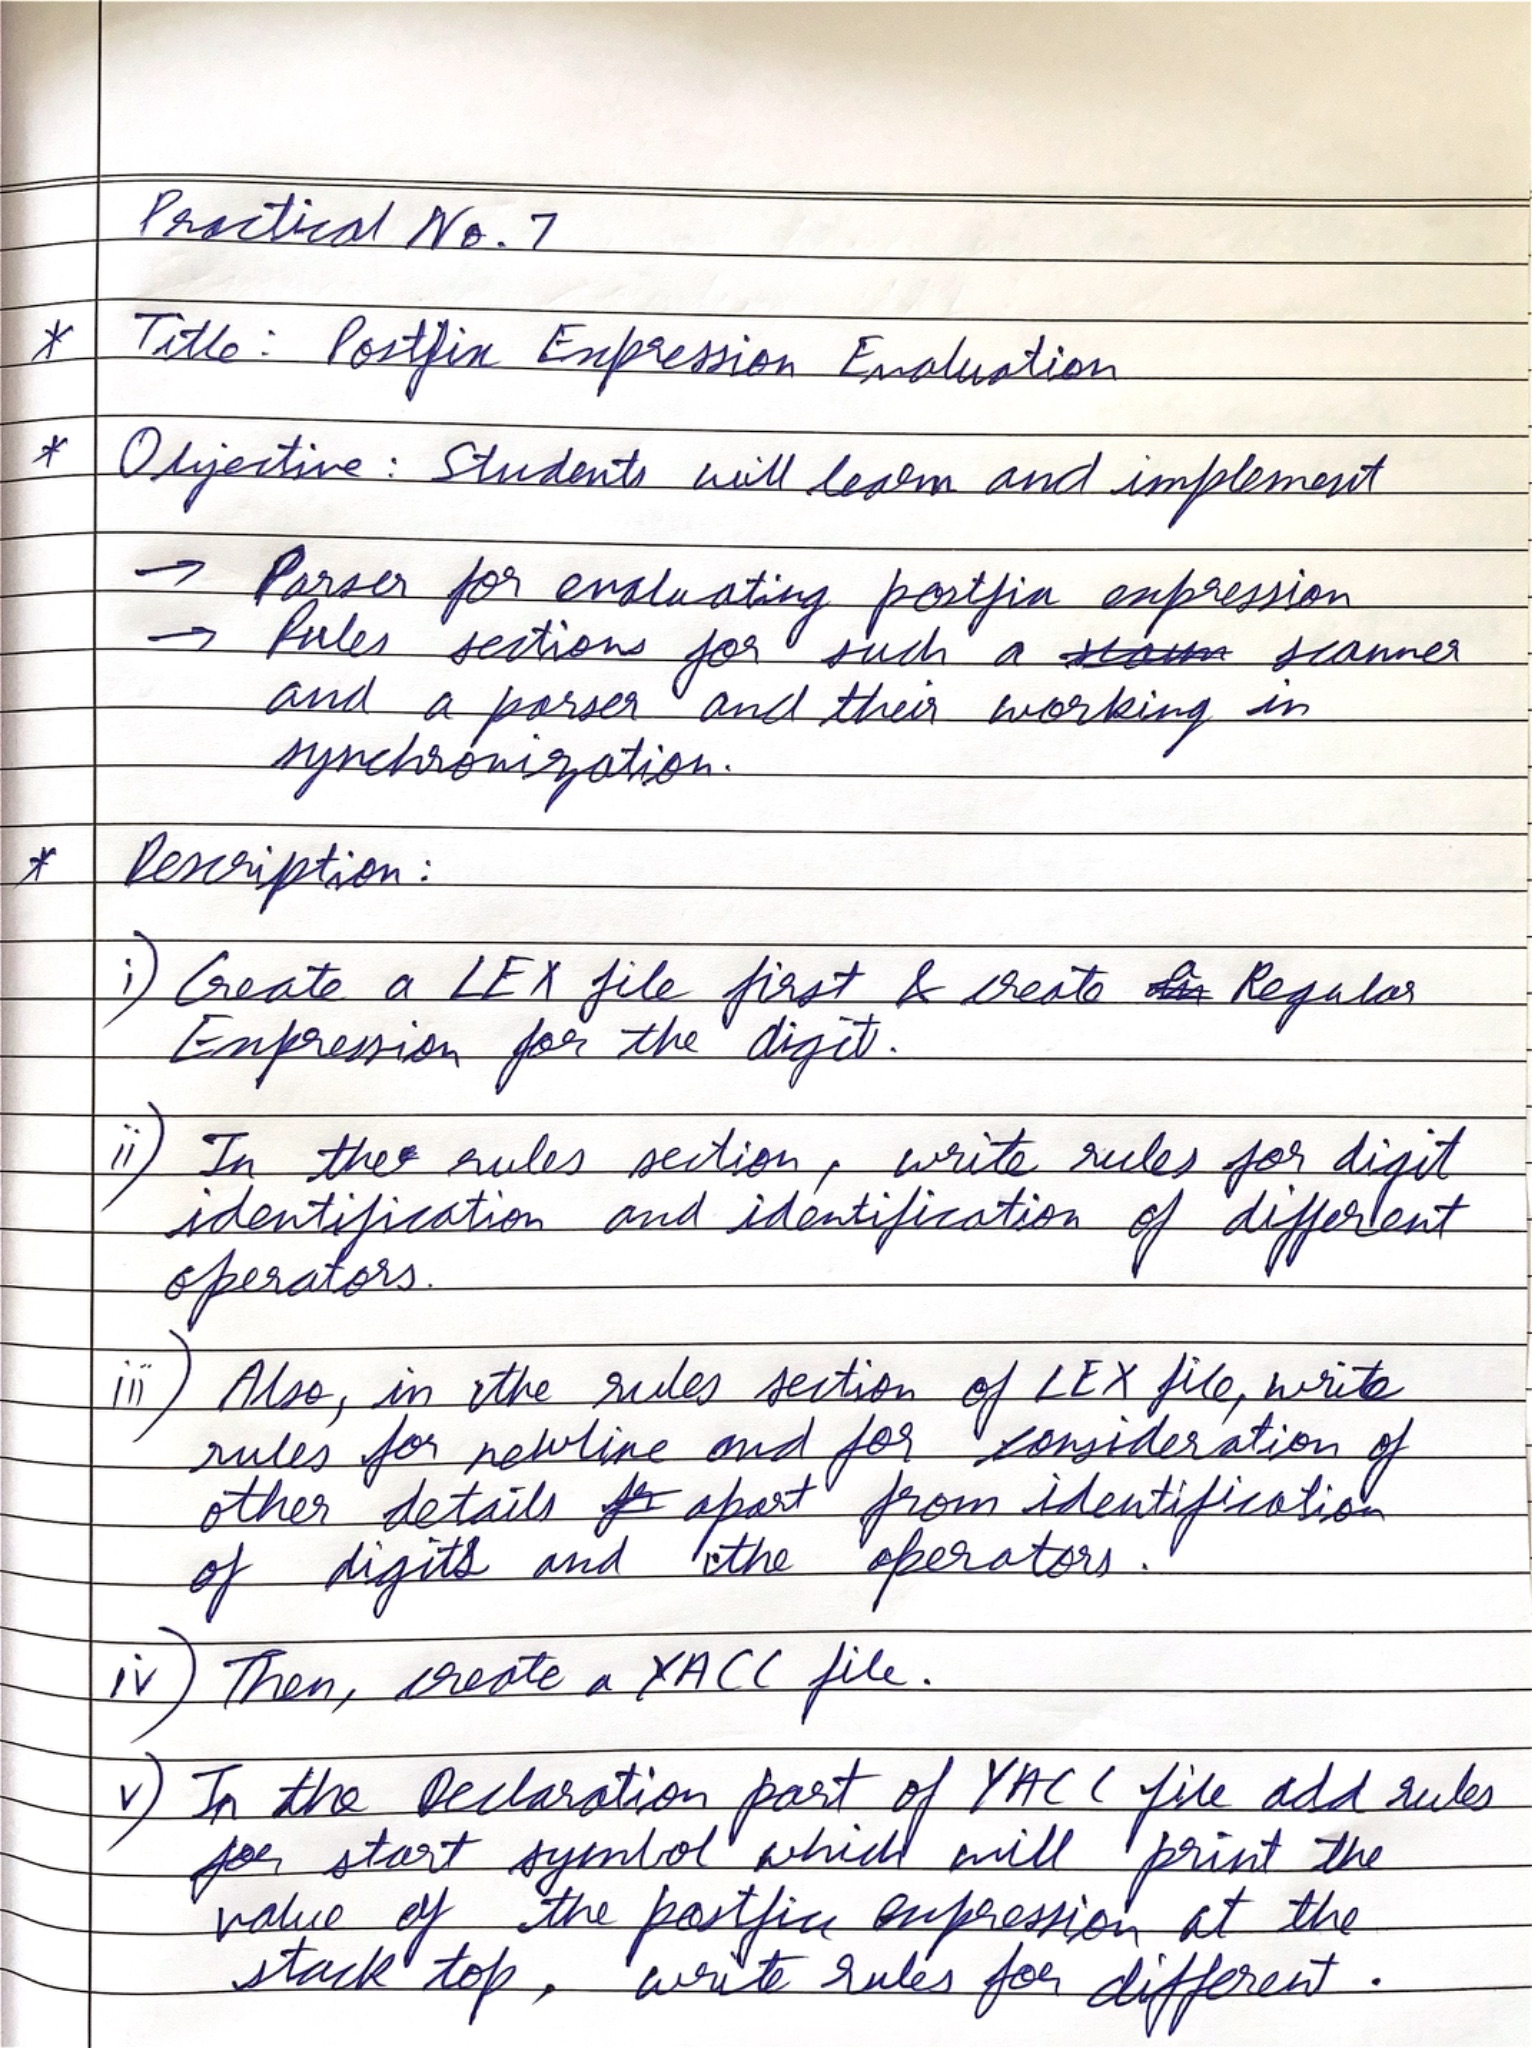 Practical No. 7
* Title: Postfix Expression Evaluation
* Objective: Students will learn and implement
→ Parser for evaluating postfix expression
→ Rules sections for such a scanner
and a parser and their working in
synchronization.
* Description:
i) Create a LEX file first & create Regular
Expression for the digit.
ii) In the rules section, write rules for digit
identification and identification of different
operators.
iii) Also, in the rules section of LEX file, write
rules for newline and for consideration of
other details apart from identification
of digits and the operators.
iv) Then, create a YACC file.
v) In the Declaration part of YACC file add rules
for start symbol which will print the
value of the postfix expression at the
stack top, write rules for different.